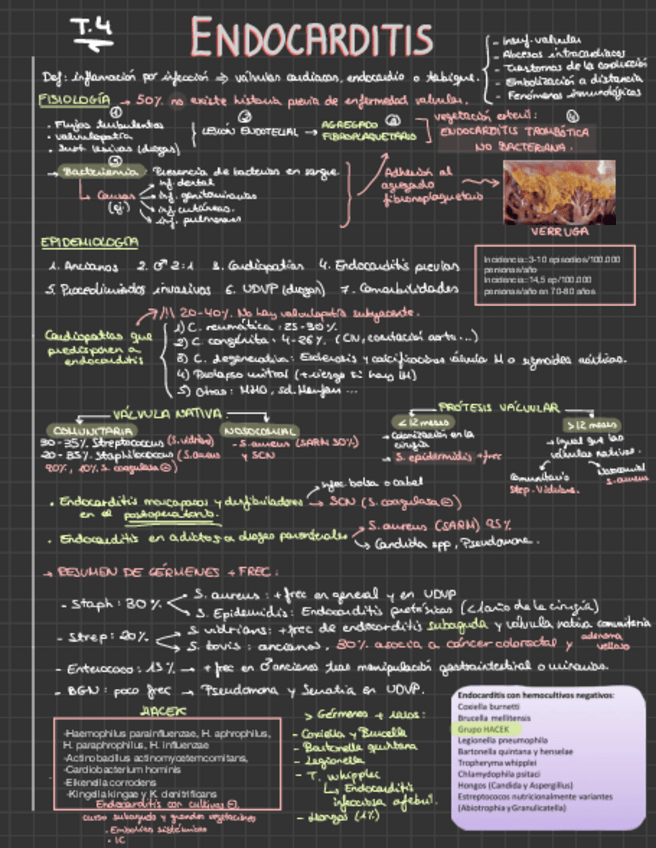 T.4
ENDOCARDITIS
- Insuf. valvular
- Abscesos intracardiacos
- Trastornos de la conducción
- Embolización a distancia
- Fenómenos inmunológicos
Def: inflamación por infección ⇒ válvulas cardiacas, endocardio o tabique.
FISIOLOGÍA → 50% no existe historia previa de enfermedad valvular.
① ② ④
· Flujos turbulentos
· valvulopatía
(drogas)
LESIÓN ENDOTELIAL → AGREGADO FIBROPLAQUETARIO
vegetación estéril:
ENDOCARDITIS TROMBÓTICA
NO BACTERIANA.
③
→ Bacteriemia Presencia de bacterias en sangre
Causas (ej)
inf. dental
inf. genitourinarias
inf. cutáneas.
inf. pulmonares
Adhesión al
agregado
fibronoplaquetario
VERRUGA
EPIDEMIOLOGÍA
1. Ancianos 2. ♂ 2:1 3. Cardiopatías 4. Endocarditis previas
5. Procedimientos invasivos 6. UDVP (drogas) 7. Comorbilidades
Incidencia: 3-10 episodios/100.000
personas/año
Incidencia: 14,5 ep/100.000
personas/año en 70-80 años
20-40%. No hay valvulopatía subyacente.
Cardiopatías que
predisponen a
endocarditis
1) C. reumática: 25-30%.
2) C. congénita: 4-26%. (CIV, coartación aorta...)
3) C. degenerativa: Esclerosis y calcificaciones válvula M o sigmoidea aórtica.
4) Prolapso mitral (+riesgo si hay IM)
5) Otras: MHO, sd. Marfan ...
VÁLVULA NATIVA
COMUNITARIA
30-35% Streptococcus (S. viridans)
20-35% Staphilococcus (S. aureus
90%, 10% S. coagulasa ⊖)
NOSOCOMIAL
- S. aureus (SARM 50%)
y SCN
PRÓTESIS VALVULAR
<12 meses
→ Colonización en la
cirugía
→ S. epidermidis +frec
>12 meses
→ Igual que las
válvulas nativas.
Comunitario
Strep. Viridans.
Nosocomial
S. aureus
· Endocarditis marcapasos y desfibriladores
en el postoperatorio.
infec. bolsa o cable
→ SCN (S. coagulasa ⊖)
· Endocarditis en adictos a drogas parenterales
S. aureus (SARM) 95%
Candida spp, Pseudomona.
→ RESUMEN DE GÉRMENES + FREC:
- Staph: 30%
S. aureus: +frec en general y en UDVP
S. Epidermidis: Endocarditis protésicas (1er año de la cirugía)
- Strep: 20%
S. viridrians: +frec de endocarditis subaguda y válvula nativa comunitaria
S. bovis: ancianos, 30% asocia a cáncer colorectal y adenoma velloso
- Enterococo: 15% → +frec en ♂ ancianos tras manipulación gastrointestinal o urinaria.
- BGN: poco frec → Pseudomona y Serratia en UDVP.
HACEK
-Haemophilus parainfluenzae, H. aphrophilus,
H. paraphrophilus, H. influenzae
-Actinobacillus actinomycetemcomitans,
-Cardiobacterium hominis
-Eikenella corrodens
-Kingella kingae y K. denitrificans
Endocarditis con cultivos ⊖,
curso subagudo y grandes vegetaciones
· Embolias sistémicas
· IC
> Gérmenes + raros:
- Coxiella y Brucella
- Bartonella quintana
- Legionella
- T. whipplei
↳ Endocarditis
infecciosa afebril.
- Hongos (1%)
Endocarditis con hemocultivos negativos:
Coxiella burnetti
Brucella mellitensis
Grupo HACEK
Legionella pneumophila
Bartonella quintana y henselae
Tropheryma whipplei
Chlamydophila psitaci
Hongos (Candida y Aspergillus)
Estreptococos nutricionalmente variantes
(Abiotrophia y Granulicatella)